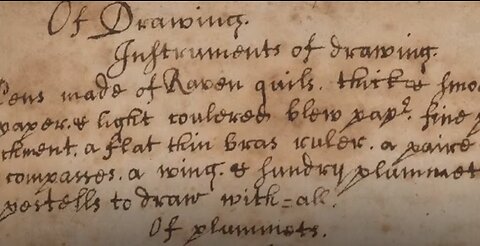 Of Drawing.
Instruments of drawing.
Pens made of Raven quils. thick & smo
paper. & light coulered blew papr. fine p
chment. a flat thin bras ruler. a paire
compasses. a wing. & sundry plummet
pestells to draw with=all.
Of plummets.